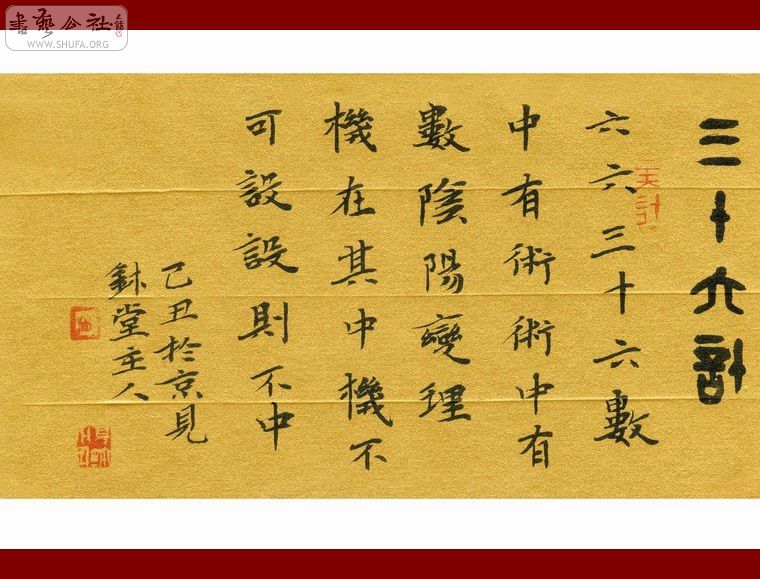 書藝公社
WWW.SHUFA.ORG
三十六計
六六三十六數
中有術術中有
數陰陽燮理
機在其中機不
可設設則不中
己丑於京見
堂主人